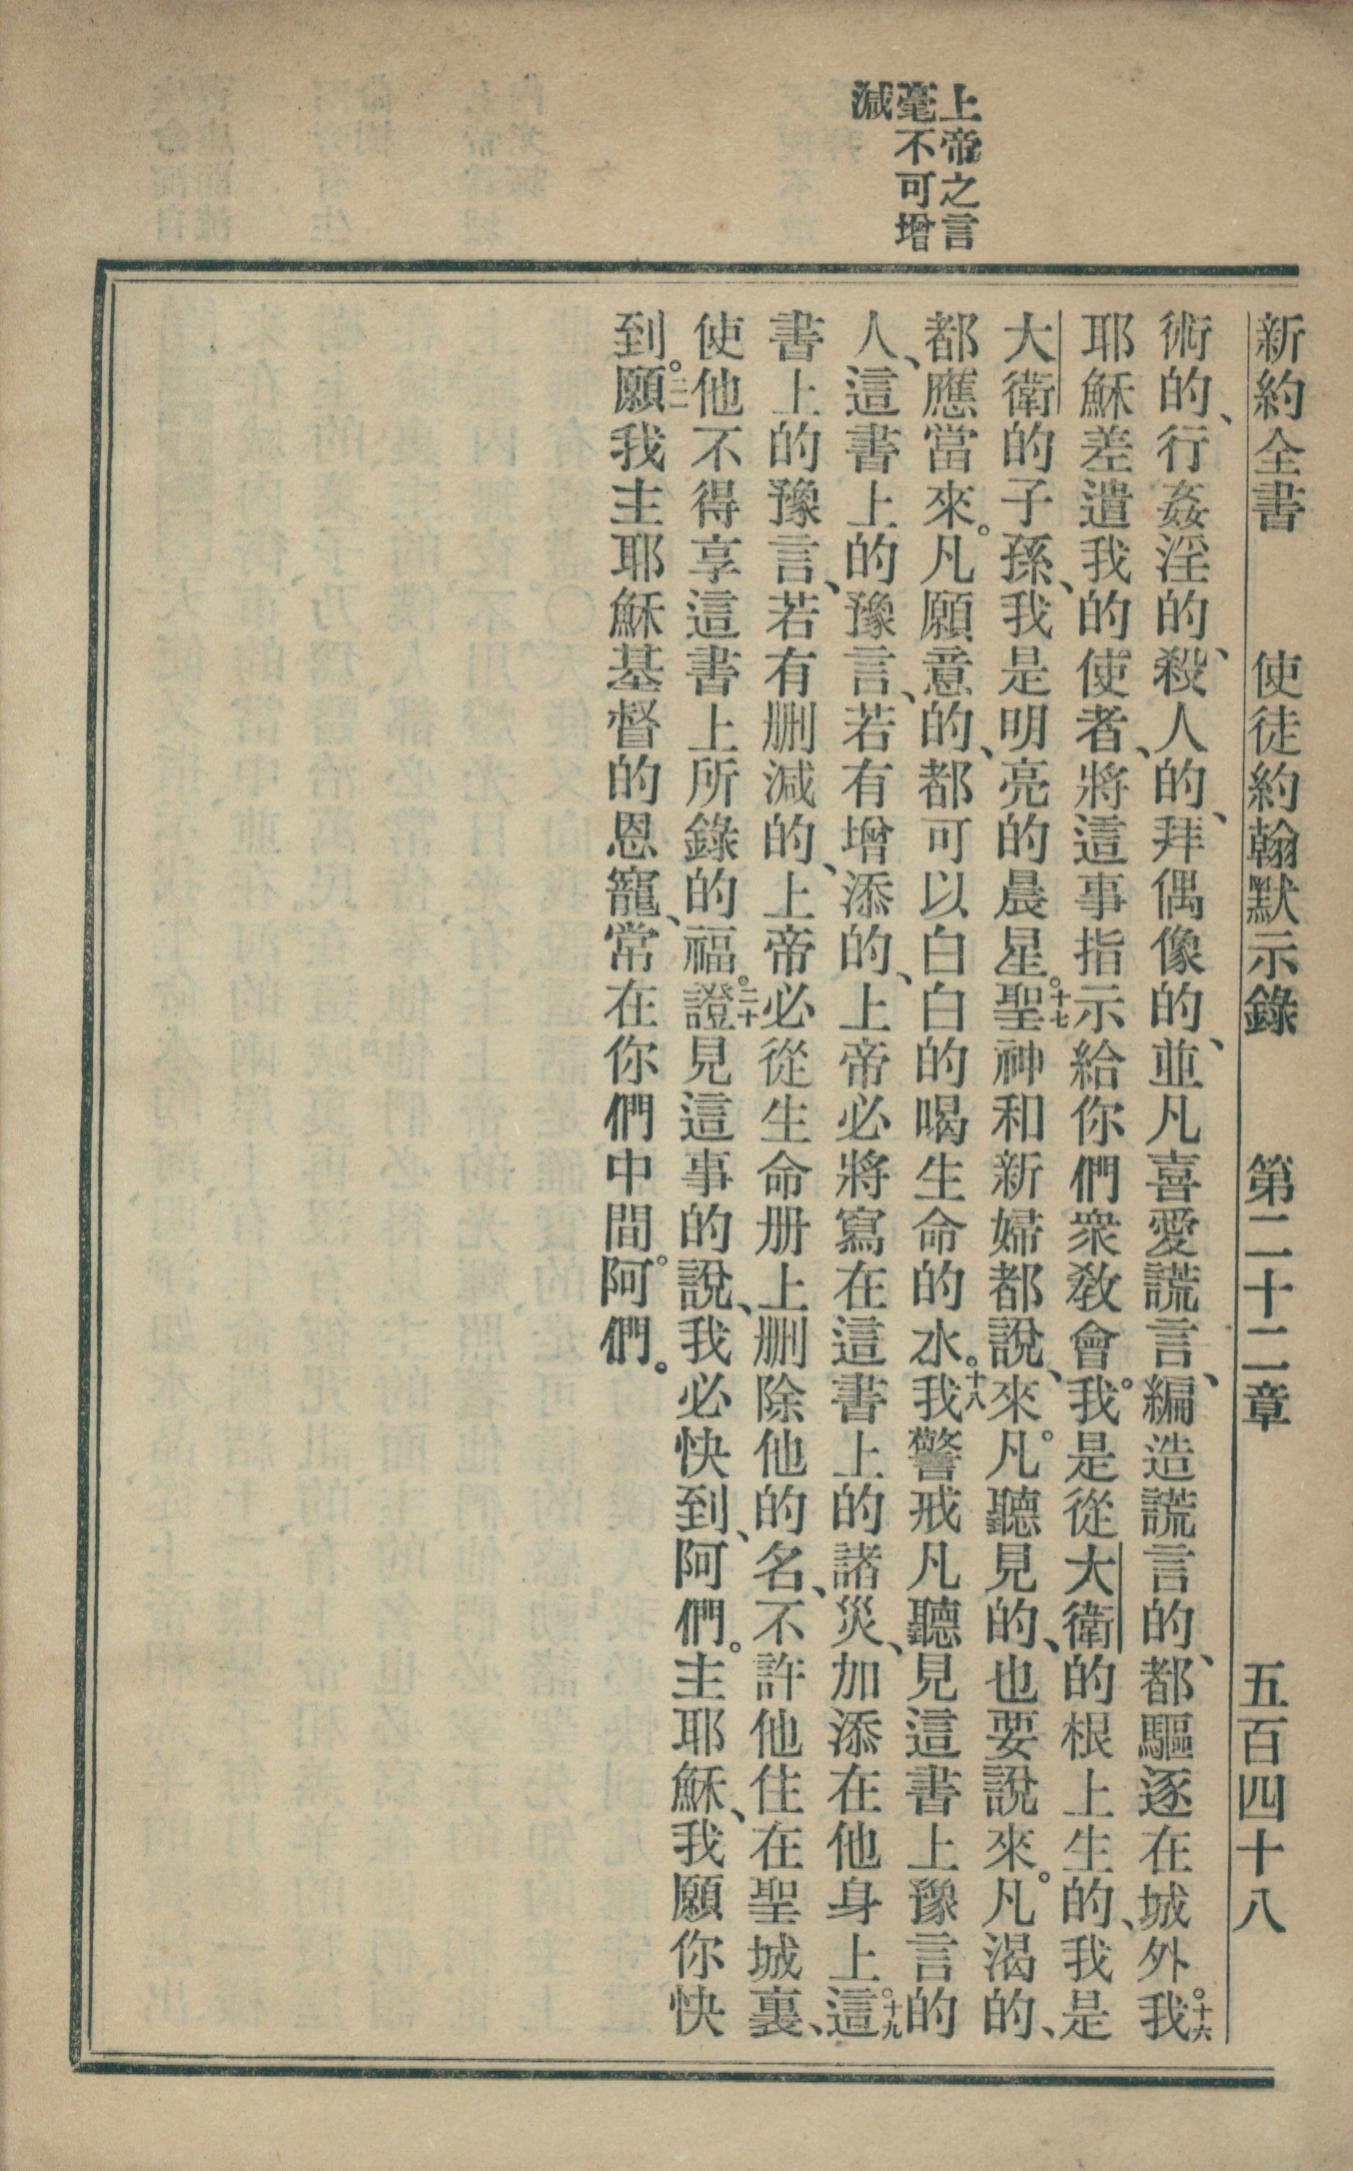 上帝之言
毫不可增
減
新約全書 使徒約翰默示錄 第二十二章 五百四十八
術的、行姦淫的、殺人的、拜偶像的、並凡喜愛謊言、編造謊言的、都驅逐在城外。十六我
耶穌差遣我的使者、將這事指示給你們衆教會。我是從大衛的根上生的、我是
大衛的子孫、我是明亮的晨星。十七聖神和新婦都說、來。凡聽見的、也要說來。凡渴的、
都應當來。凡願意的、都可以白白的喝生命的水。十八我警戒凡聽見這書上豫言的
人、這書上的豫言、若有增添的、上帝必將寫在這書上的諸災、加添在他身上。十九這
書上的豫言、若有删減的、上帝必從生命册上删除他的名、不許他住在聖城裏、
使他不得享這書上所錄的福。二十證見這事的說、我必快到、阿們。主耶穌、我願你快
到。二一願我主耶穌基督的恩寵、常在你們中間。阿們。